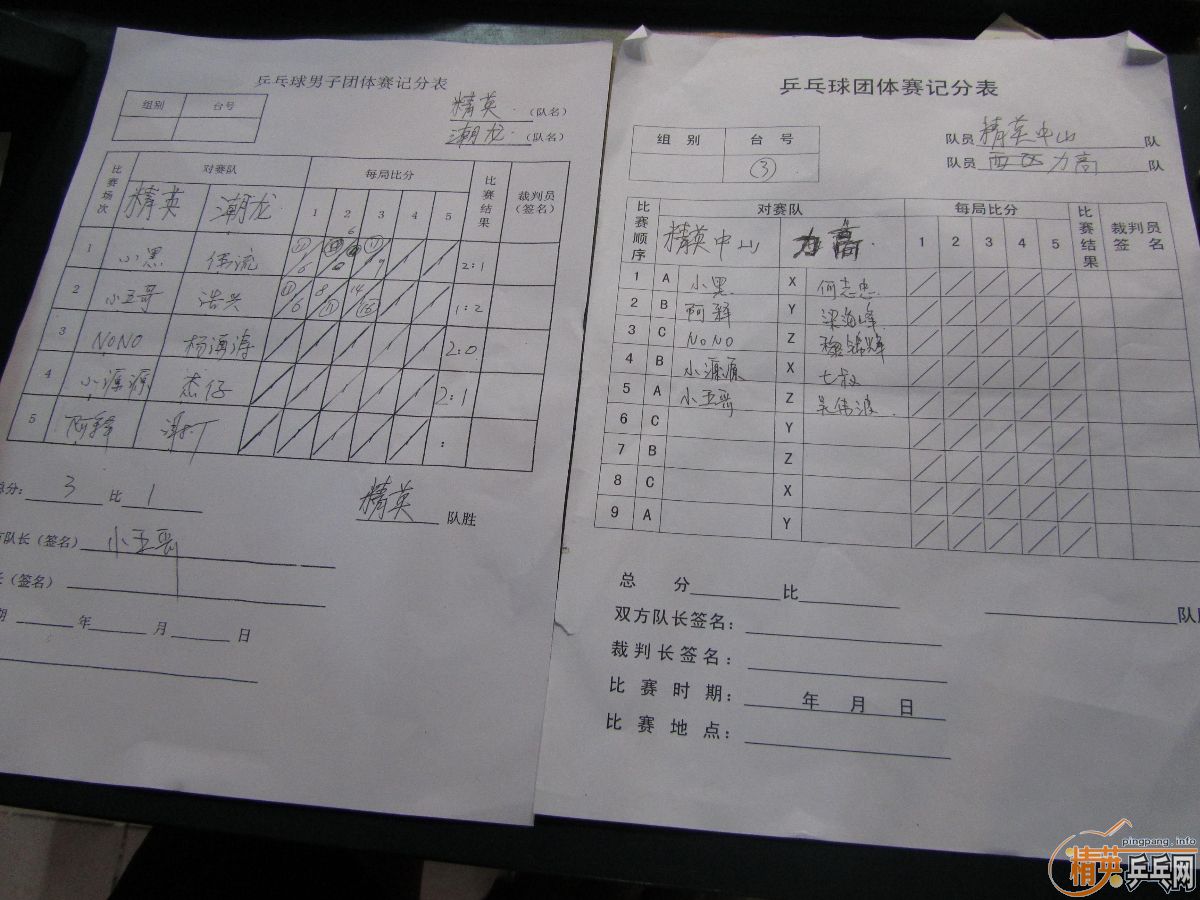 乒乓球男子团体赛记分表
组别 台号
精英 (队名)
潮龙 (队名)
比赛场次 对赛队 每局比分 比赛结果 裁判员(签名)
精英 潮龙 1 2 3 4 5
1 小黑 伍流 2:1
2 小五哥 浩兴 1:2
3 NONO 杨海涛 2:0
4 小源源 杰仔 2:1
5 阿释 :
总分: 3 比 1 精英 队胜
方队长(签名) 小五哥
长(签名)
期 年 月 日
乒乓球团体赛记分表
组别 台号
③
队员 精英中山 队
队员 西区力高 队
比赛顺序 对赛队 每局比分 比赛结果 裁判员签名
精英中山 力高 1 2 3 4 5
1 A 小黑 X 何志忠
2 B 阿释 Y 梁海峰
3 C NONO Z
4 B 小源源 X 七叔
5 A 小五哥 Z 吴伟波
6 C Y
7 B Z
8 C X
9 A Y
总 分 比 队胜
双方队长签名:
裁判长签名:
比赛时期: 年 月 日
比赛地点:
pingpang.info
精英乒乓网